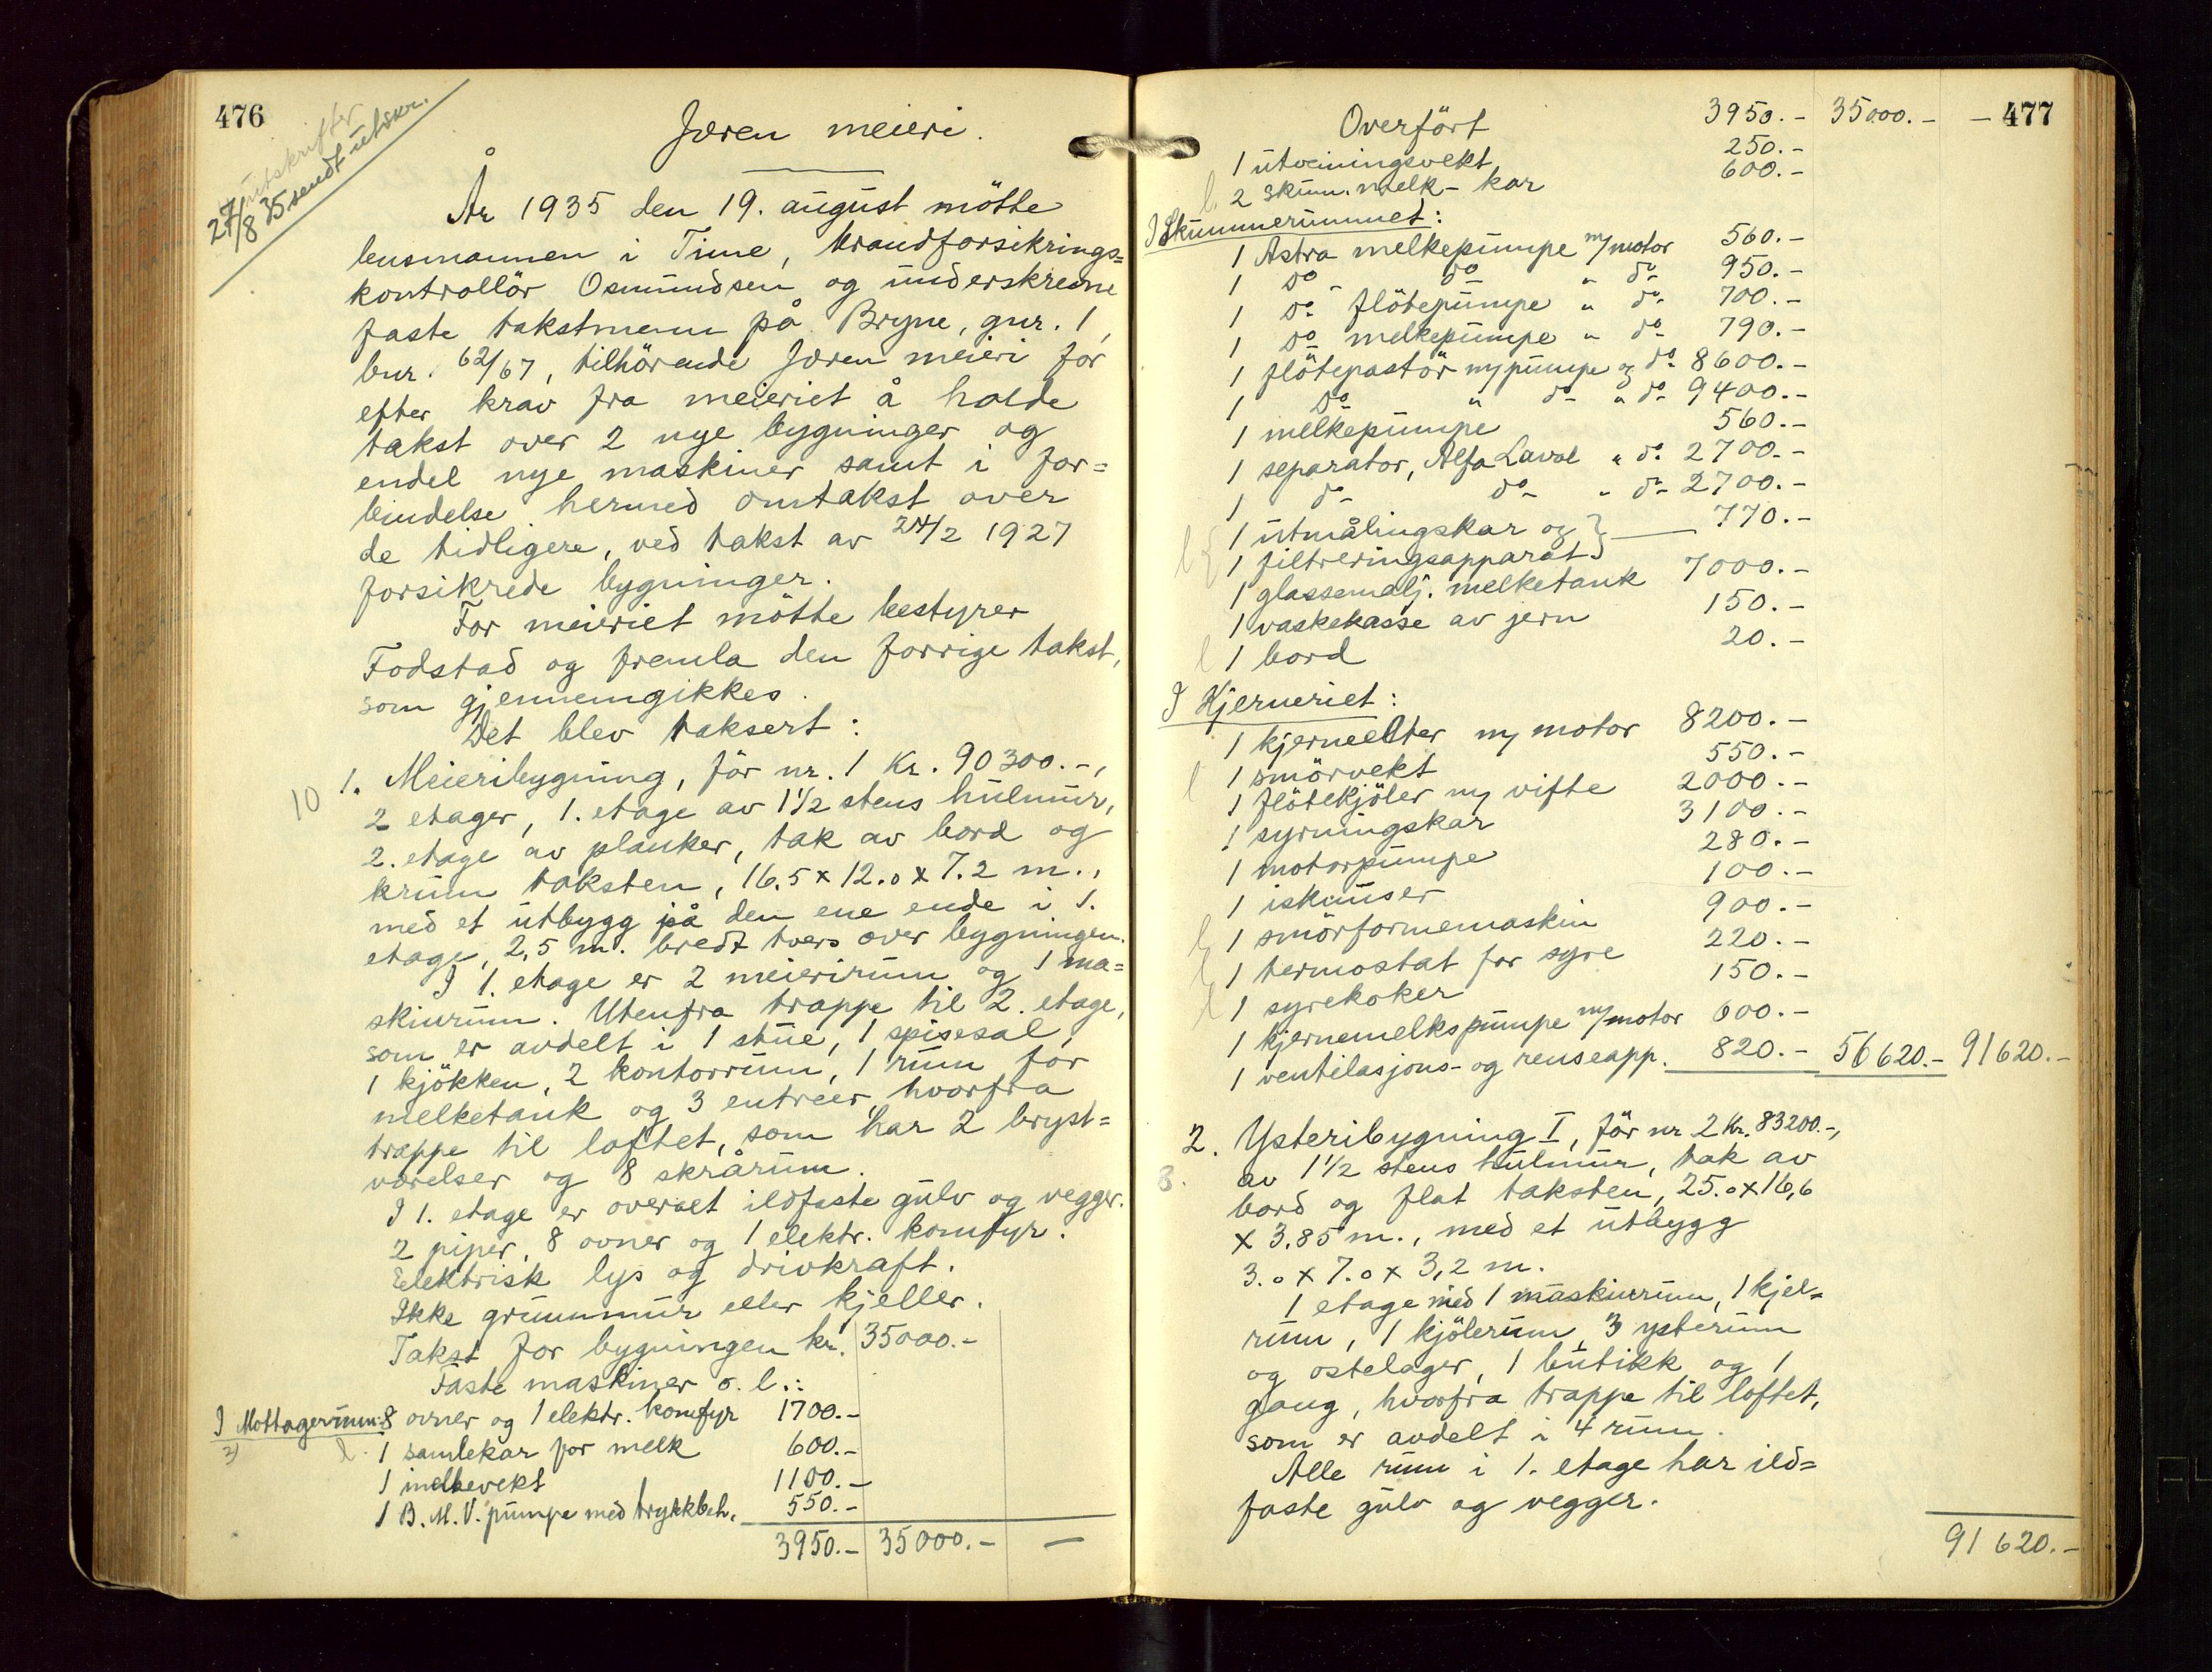 476
utskrifter
27/8 35 sendt utskr.
Jæren meieri.
År 1935 den 19. august mötte
lensmannen i Time, brandforsikrings=
kontrollör Osmundsen og underskrevne
faste takstmenn på Bryne, gnr. 1,
bnr. 62/67, tilhörende Jæren meieri for
efter krav fra meieriet å holde
takst over 2 nye bygninger og
endel nye maskiner samt i for=
bindelse hermed omtakst over
de tidligere, ved takst av 24/2 1927
forsikrede bygninger.
For meieriet mötte bestyrer
Fodstad og fremla den forrige takst,
som gjennemgikkes.
Det blev taksert:
10 1. Meieribygning, för nr. 1 Kr. 90300.-,
2 etager, 1. etage av 1½ stens hulmur,
2. etage av planker, tak av bord og
krum taksten, 16.5 x 12.0 x 7.2 m.,
med et utbygg på den ene ende i 1.
etage, 2,5 m. bredt tvers over bygningen.
I 1. etage er 2 meierirum og 1 ma=
skinrum. Utenfra trappe til 2. etage,
som er avdelt i 1 stue, 1 spisesal,
1 kjökken, 2 kontorrum, 1 rum for
melketank og 3 entreer, hvorfra
trappe til loftet, som har 2 bryst=
værelser og 8 skrårum.
I 1. etage er overalt ildfaste gulv og vegger.
2 piper, 8 ovner og 1 elektr. komfyr.
Elektrisk lys og drivkraft.
Ikke grunnmur eller kjeller.
Takst for bygningen kr. 35000.-
Faste maskiner o. l.:
I Mottagerrum: 8 ovner og 1 elektr. komfyr 1700.-
l. 1 samlekar for melk 600.-
1 melkevekt 1100.-
1 B. M. V. pumpe med trykkbeh. 550.-
3950.- 35000.- —
477
Overfört 3950.- 35000.- -
1 utveiningsvekt 250.-
l. 2 skum. melk-kar 600.-
I Skummerummet:
1 Astra melkepumpe m/motor 560.-
1 do do " do 950.-
1 do flötepumpe " do 700.-
1 do melkepumpe " do 790.-
1 flötepastör m/pumpe og do 8600.-
1 do " do " do 9400.-
1 melkepumpe 560.-
1 separator, Alfa Laval " do 2700.-
1 do do " do 2700.-
l { 1 utmålingskar og }
1 filtreringsapparat } 770.-
1 glassemalj. melketank 7000.-
1 vaskekasse av jern 150.-
l 1 bord 20.-
I Kjerneriet:
1 kjerneelter m/ motor 8200.-
l 1 smörvekt 550.-
1 flötekjöler m/ vifte 2000.-
1 syrningskar 3100.-
1 motorpumpe 280.-
1 isknuser 100.-
l 1 smörformemaskin 900.-
l 1 termostat for syre 220.-
l 1 syrekoker 150.-
1 kjernemelkspumpe m/motor 600.-
1 ventilasjons- og renseapp. 820.- 56620.- 91620.-
2. Ysteribygning I, för nr 2 Kr. 83200.-,
av 1½ stens hulmur, tak av
bord og flat taksten, 25.0 x 16,6
x 3.85 m., med et utbygg
3.0 x 7.0 x 3,2 m.
1 etage med 1 maskinrum, 1 kjel=
rum, 1 kjölerum, 3 ysterum
og ostelager, 1 butikk og 1
gang, hvorfra trappe til loftet,
som er avdelt i 4 rum.
Alle rum i 1. etage har ild=
faste gulv og vegger.
91620.-